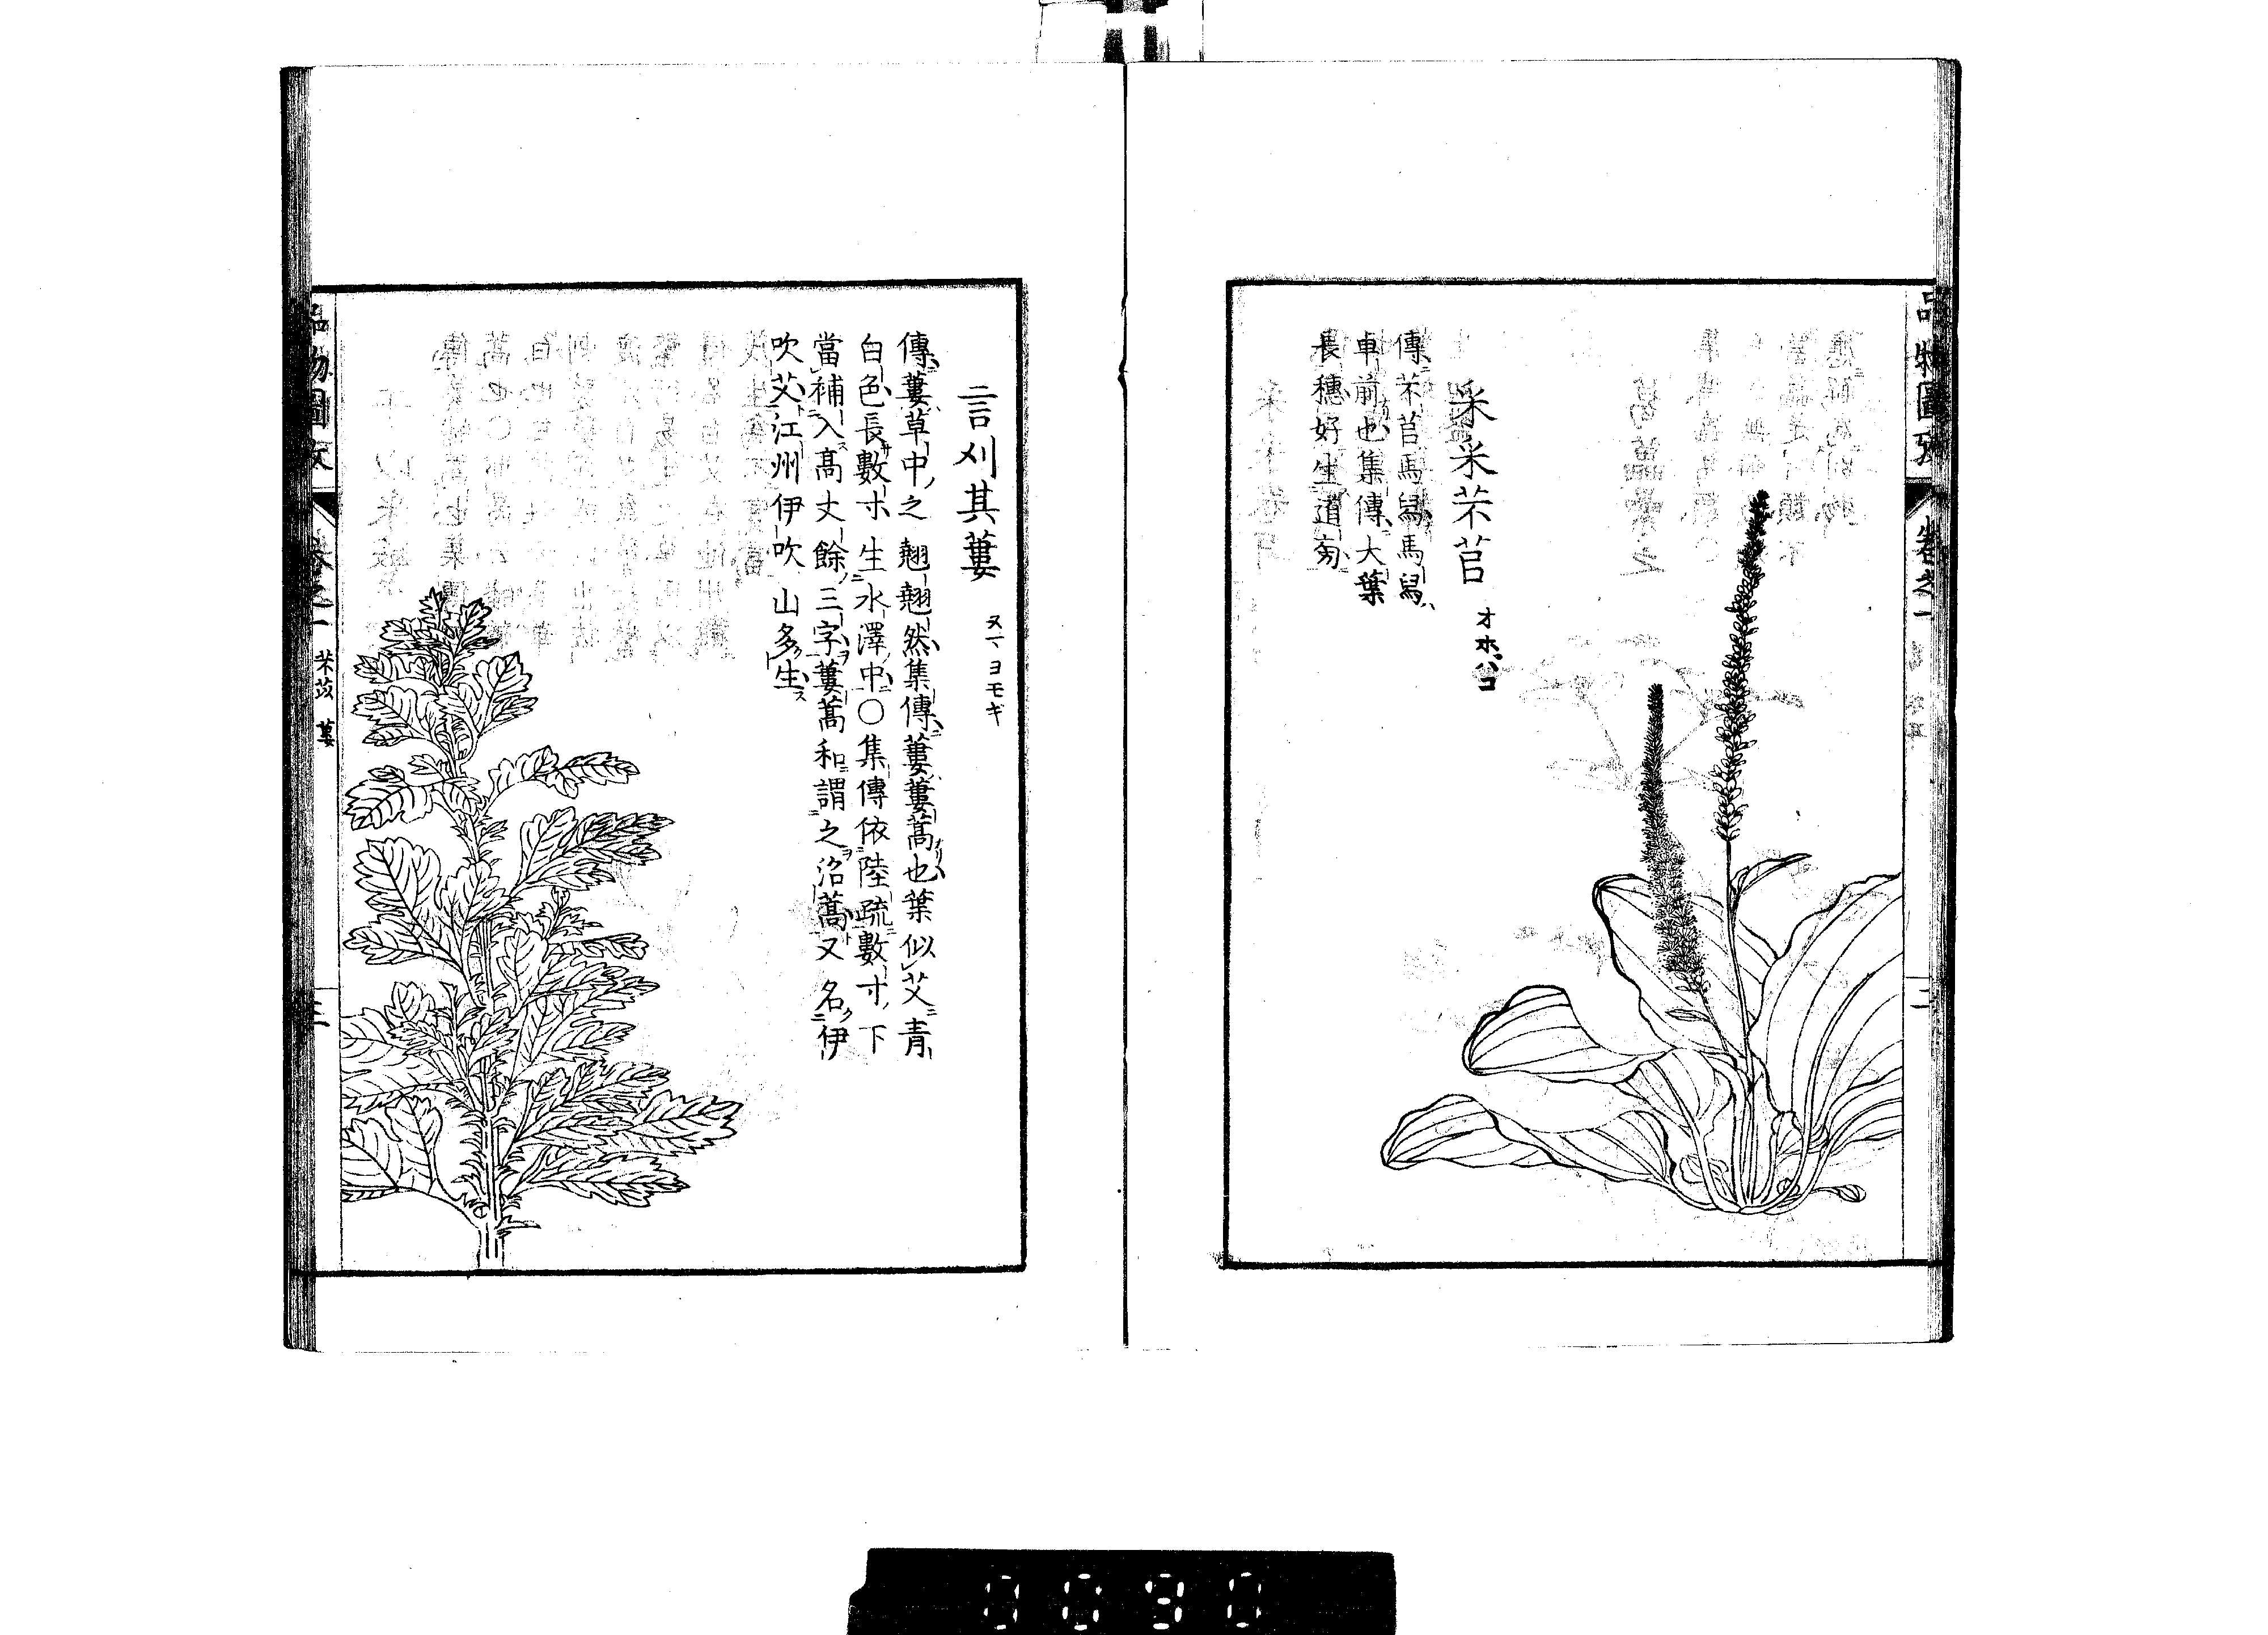 采采芣苢 オホバコ
傳芣苢馬舄馬舄
車前也集傳大葉
長穗好生道旁
品物圖攷 卷之一 三
言刈其蔞 ヌマヨモギ
傳蔞草中之翹翹然集傳蔞蔞蒿也葉似艾青
白色長數寸生水澤中○集傳依陸疏數寸下
當補入高丈餘三字蔞蒿和謂之沼蒿又名伊
吹艾江州伊吹山多生
品物圖攷 卷之一 芣苡 蔞 三